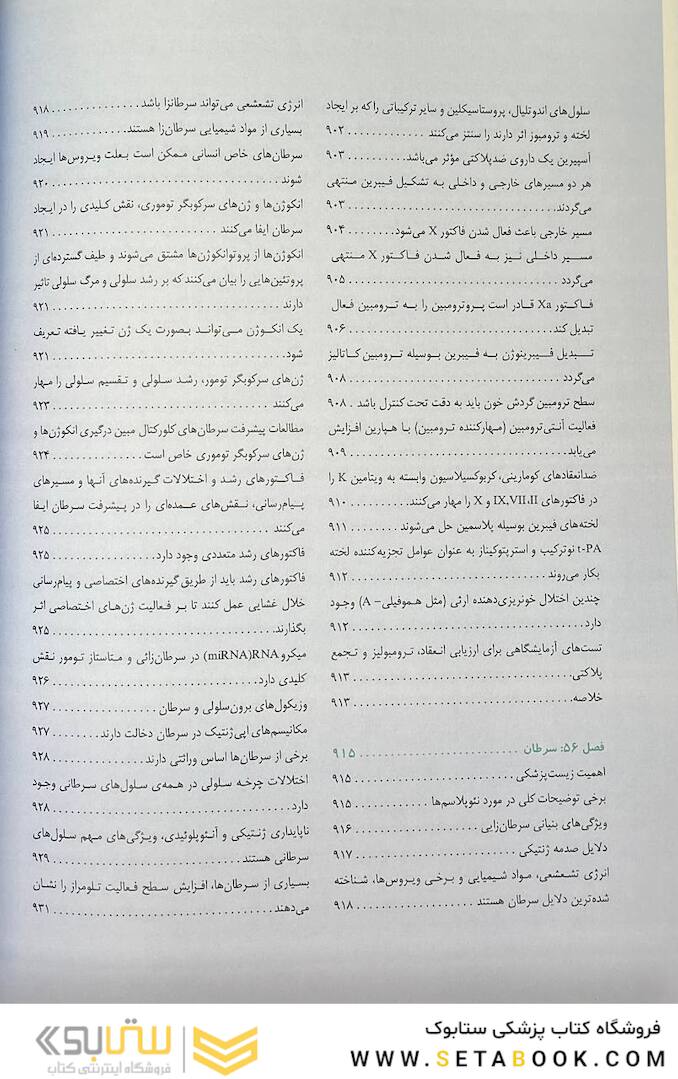 سلول‌های اندوتلیال، پروستاسیکلین و سایر ترکیباتی را که بر ایجاد
لخته و ترومبوز اثر دارند را سنتز می‌کنند ............ ۹۰۲
آسپیرین یک داروی ضدپلاکتی مؤثر می‌باشد........... ۹۰۳
هر دو مسیرهای خارجی و داخلی به تشکیل فیبرین منتهی
می‌گردند............................... ۹۰۳
مسیر خارجی باعث فعال شدن فاکتور X می‌شود........ ۹۰۴
مسیر داخلی نیز به فعال شدن فاکتور X منتهی
می‌گردد ............................... ۹۰۵
فاکتور Xa قادر است پروترومبین را به ترومبین فعال
تبدیل کند............................... ۹۰۶
تبدیل فیبرینوژن به فیبرین بوسیله ترومبین کاتالیز
می‌گردد ............................... ۹۰۸
سطح ترومبین گردش خون باید به دقت تحت کنترل باشد . ۹۰۸
فعالیت آنتی‌ترومبین (مهارکننده ترومبین) با هپارین افزایش
می‌یابد............................... ۹۰۹
ضدانعقادهای کومارینی، کربوکسیلاسیون وابسته به ویتامین K را
در فاکتورهای IX,VII،II و X را مهار می‌کنند.......... ۹۱۰
لخته‌های فیبرین بوسیله پلاسمین حل می‌شوند ......... ۹۱۱
t-PA نوترکیب و استرپتوکیناز به عنوان عوامل تجزیه‌کننده لخته
بکار می‌روند ............................ ۹۱۲
چندین اختلال خونریزی‌دهنده ارثی (مثل هموفیلی- A) وجود
دارد................................. ۹۱۲
تست‌های آزمایشگاهی برای ارزیابی انعقاد، ترومبولیز و تجمع
پلاکتی............................... ۹۱۳
خلاصه............................... ۹۱۳
فصل ۵۶: سرطان ....................... ۹۱۵
اهمیت زیست‌پزشکی ....................... ۹۱۵
برخی توضیحات کلی در مورد نئوپلاسم‌ها ............ ۹۱۵
ویژگی‌های بنیانی سرطان‌زایی .................... ۹۱۶
دلایل صدمه ژنتیکی ........................ ۹۱۷
انرژی تشعشعی، مواد شیمیایی و برخی ویروس‌ها، شناخته
شده‌ترین دلایل سرطان هستند ................. ۹۱۸
انرژی تشعشعی می‌تواند سرطانزا باشد ............... ۹۱۸
بسیاری از مواد شیمیایی سرطان‌زا هستند............. ۹۱۹
سرطان‌های خاص انسانی ممکن است بعلت ویروس‌ها ایجاد
شوند ................................ ۹۲۰
انکوژن‌ها و ژن‌های سرکوبگر توموری، نقش کلیدی را در ایجاد
سرطان ایفا می‌کنند ........................ ۹۲۱
انکوژن‌ها از پروتوانکوژن‌ها مشتق می‌شوند و طیف گسترده‌ای از
پروتئین‌هایی را بیان می‌کنند که بر رشد سلولی و مرگ سلولی تاثیر
دارند ................................ ۹۲۱
یک انکوژن می‌تواند بصورت یک ژن تغییر یافته تعریف
شود................................. ۹۲۱
ژن‌های سرکوبگر تومور، رشد سلولی و تقسیم سلولی را مهار
می‌کنند ............................... ۹۲۳
مطالعات پیشرفت سرطان‌های کلورکتال مبین درگیری انکوژن‌ها و
ژن‌های سرکوبگر توموری خاص است .............. ۹۲۴
فاکتورهای رشد و اختلالات گیرنده‌های آنها و مسیرهای
پیام‌رسانی، نقش‌های عمده‌ای را در پیشرفت سرطان ایفا
می‌کنند ............................... ۹۲۵
فاکتورهای رشد متعددی وجود دارد................ ۹۲۵
فاکتورهای رشد باید از طریق گیرنده‌های اختصاصی و پیام‌رسانی
خلال غشایی عمل کنند تا بر فعالیت ژن‌های اختصاصی اثر
بگذارند................................ ۹۲۵
میکرو RNA‏(miRNA) در سرطان‌زائی و متاستاز تومور نقش
کلیدی دارد............................. ۹۲۶
وزیکول‌های برون‌سلولی و سرطان ................ ۹۲۷
مکانیسم‌های اپی‌ژنتیک در سرطان دخالت دارند ........ ۹۲۷
برخی از سرطان‌ها اساس وراثتی دارند.............. ۹۲۸
اختلالات چرخه سلولی در همه‌ی سلول‌های سرطانی وجود
دارد................................. ۹۲۸
ناپایداری ژنتیکی و آنئوپلوئیدی، ویژگی‌های مهم سلول‌های
سرطانی هستند ........................... ۹۲۹
بسیاری از سرطان‌ها، افزایش سطح فعالیت تلومراز را نشان
می‌دهند............................... ۹۳۱
فروشگاه کتاب پزشکی ستابوک
WWW.SETABOOK.COM
ستابوک
فروشگاه اینترنتی کتاب